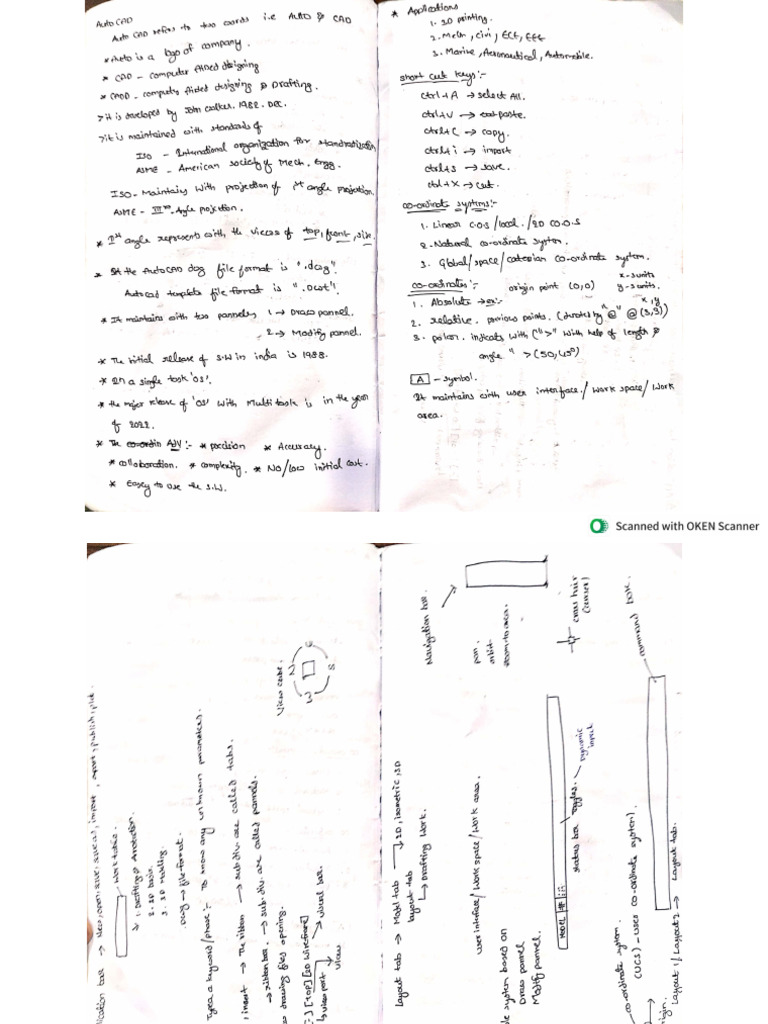 AutoCAD
Auto CAD refers to two words i.e AUTO & CAD
* Auto is a logo of company.
* CAD - computer Aided designing
* CADD - computer Aided designing & Drafting.
> it is developed by John walker. 1982. Dec.
> it is maintained with standards of
ISO - International organization for standradization
ASME - American society of Mech. Engg.
ISO - Maintains with projection of 1st angle projection.
ASME - IIIrd Angle projection.
* 1st angle represents with the views of top, front, side.
* In the AutoCAD dwg file format is ".dwg"
Autocad template file format is ".Dwt".
* It maintains with two pannels 1 → Draw pannel.
2 → Modify pannel.
* The initial release of S.W in india is 1988.
* In a single task 'OS'.
* the major release of 'OS' with Multitask is in the year
of 2022.
* The ADV :- * precision * Accuracy.
* collaboration. * complexity. * No/low initial cost.
* Easy to use the S.W.
* Applications
1. 3D printing.
2. Mech, Civi, ECE, EEE
3. Marine, Aeronautical, Automobile.
short cut keys :-
ctrl+A → select All.
ctrl+V → paste.
ctrl+C → copy.
ctrl+i → import
ctrl+s → save.
ctrl+X → cut.
co-ordinate systems :-
1. Linear C.O.S/local./2D C.O.S
2. Natural co-ordinate system.
3. Global/space/catesian co-ordinate system.
co-ordinates :- origin point (0,0) x-3 units
y-3 units.
1. Absolute → ex:- x, y
2. relative. previous points. (denotes by "@" @(3,3))
3. polar. indicats with (">" with help of length &
angle " > (50,45°)
A - symbol.
It maintains with user interface./ work space/ work
area.
Scanned with OKEN Scanner
bar → New, open, save, save as, import, export, publish, plot.
work table.
1. Drafting & Anotation.
2. 3D basic.
3. 3D modling.
Dwg → file format.
Type a keyword/phase :- To know any unknown parameters.
, insert → The ribbon → sub div. are called tabs.
→ ribbon bar. → sub. div. are called pannels.
drawing files opening.
[-] [TOP] [2D Wireframe]
view port
view
→ visual bar.
View cube.
N
E
S
W
Layout tab → Model tab → 2D, isometric, 3D
layout tab
→ Drafting work.
user interface/ work space/ work area.
system based on
Draw pannel
Modify pannel.
Navigation bar.
pan.
orbit
zoom to area.
cross hair
(cursor)
MODEL # :::
status bar toggles.
Dynamic
input
command box.
co-ordinate system.
(UCS) - user co-ordinate system).
origin.
Layout 1/Layout 2 → Layout tab.